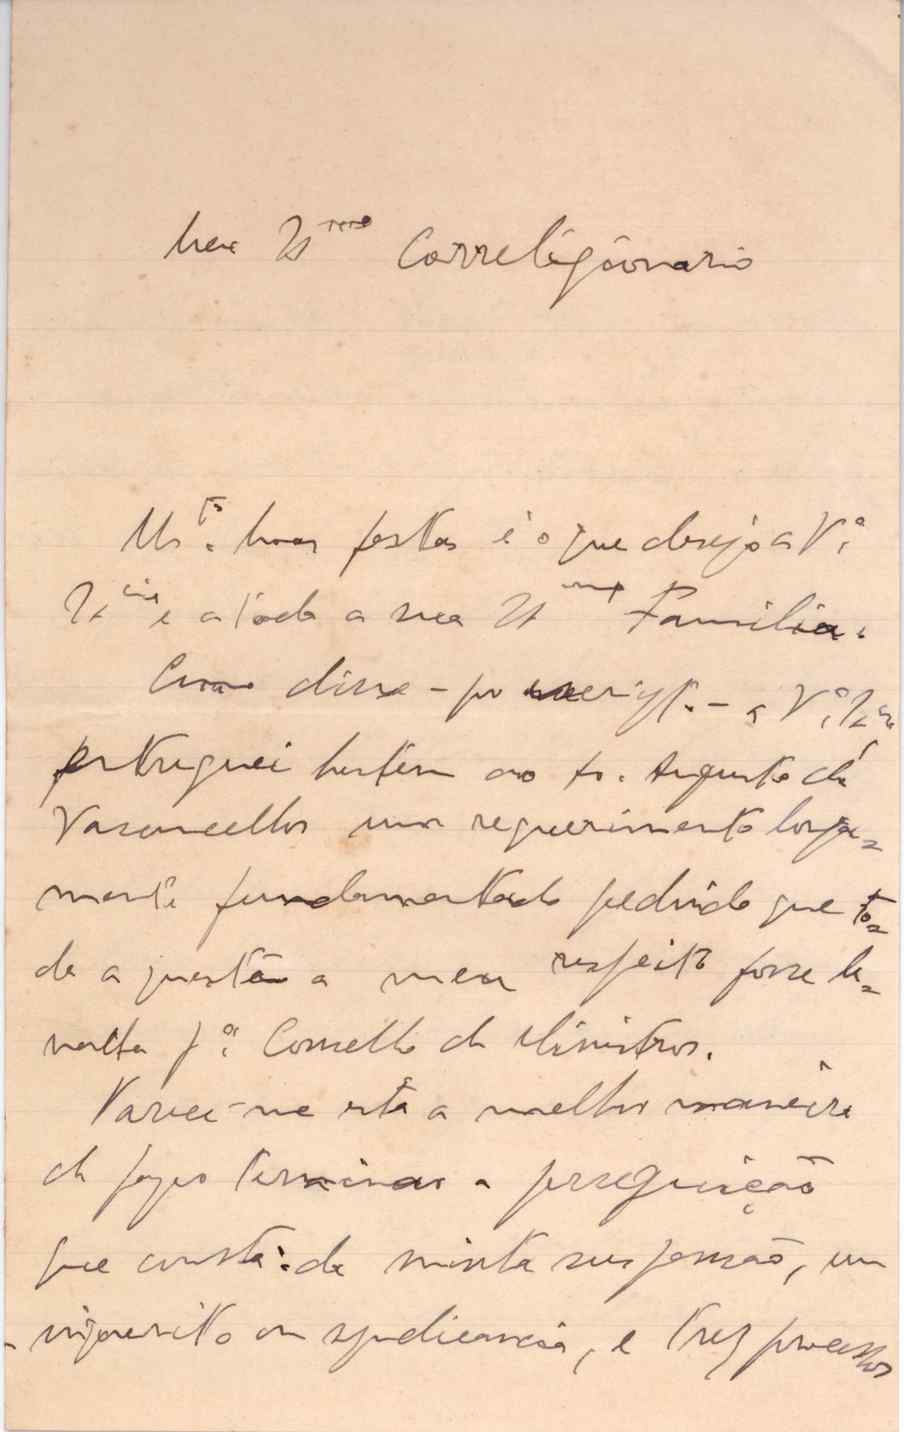 Meu Ex.mo Correligionario
M.tas boas festas é o que desejo a V.ª
Ex.cia e a toda a sua Ex.ma Familia.
Como disse - por escripto. - a V.ª Ex.cia
entreguei hontem ao Dr. Augusto de
Vasconcellos um requerimento larga=
mente fundamentado pedindo que to=
da a questão a meu respeito fosse le=
vada p.ª Conselho de Ministros.
Parece-me esta a melhor maneira
de fazer terminar a perseguição
que consta: da minha suspensão, um
inquerito ou syndicancia, e trez processos